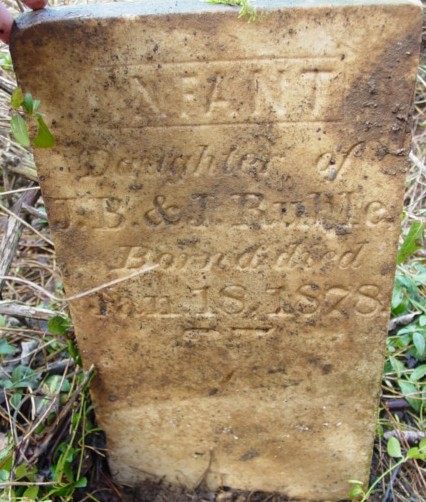 INFANT
Daughter of
J. B. & J. Ruble
Born & died
Jan. 18, 1878